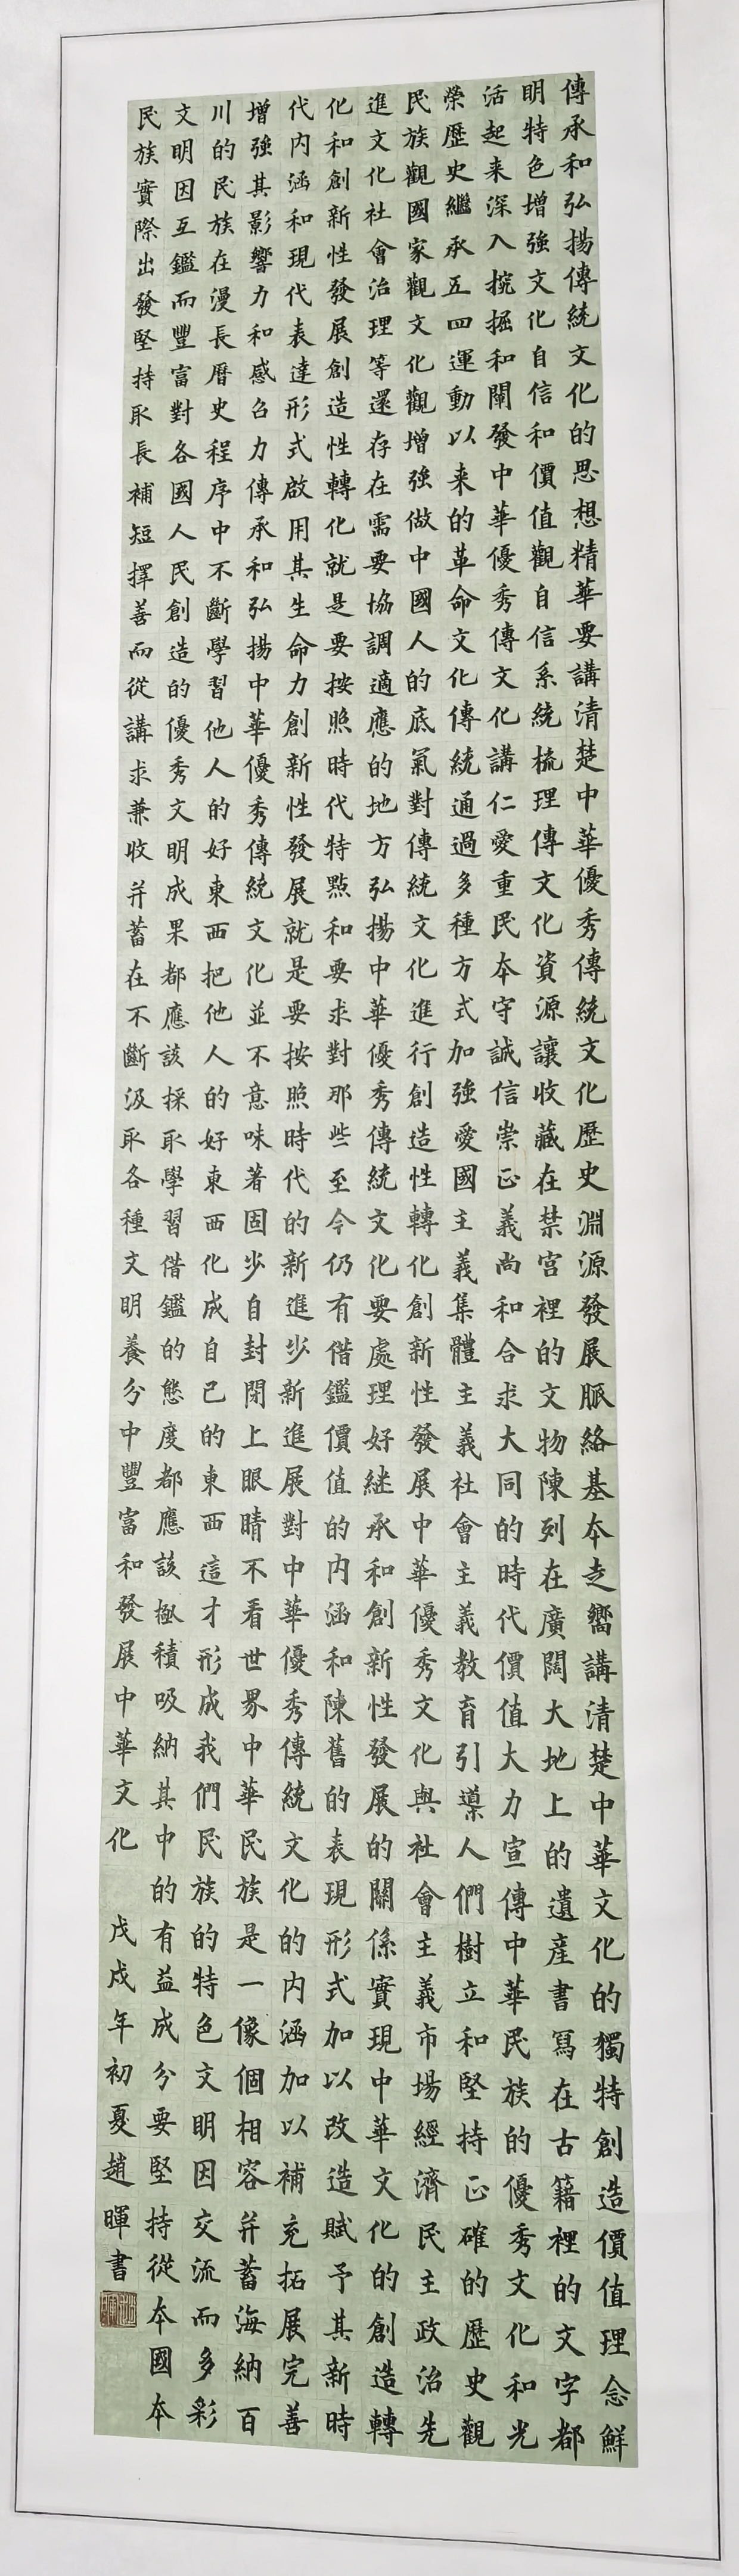 傳承和弘揚傳統文化的思想精華要講清楚中華優秀傳統文化歷史淵源發展脈絡基本走嚮講清楚中華文化的獨特創造價值理念鮮
明特色增強文化自信和價值觀自信系統梳理傳文化資源讓收藏在禁宮裡的文物陳列在廣闊大地上的遺產書寫在古籍裡的文字都
活起来深入挖掘和闡發中華優秀傳文化講仁愛重民本守誠信崇正義尚和合求大同的時代價值大力宣傳中華民族的優秀文化和光
榮歷史繼承五四運動以来的革命文化傳統通過多種方式加強愛國主義集體主義社會主義教育引導人們樹立和堅持正確的歷史觀
民族觀國家觀文化觀增強做中國人的底氣對傳統文化進行創造性轉化創新性發展中華優秀文化與社會主義市場經濟民主政治先
進文化社會治理等還存在需要協調適應的地方弘揚中華優秀傳統文化要處理好継承和創新性發展的關係實現中華文化的創造轉
化和創新性發展創造性轉化就是要按照時代特點和要求對那些至今仍有借鑑價值的内涵和陳舊的表現形式加以改造賦予其新時
代内涵和現代表達形式啟用其生命力創新性發展就是要按照時代的新進步新進展對中華優秀傳統文化的内涵加以補充拓展完善
增強其影響力和感召力傳承和弘揚中華優秀傳統文化並不意味著固步自封閉上眼睛不看世界中華民族是一像個相容并蓄海納百
川的民族在漫長曆史程序中不斷學習他人的好東西把他人的好東西化成自己的東西這才形成我們民族的特色文明因交流而多彩
文明因互鑑而豐富對各國人民創造的優秀文明成果都應該採取學習借鑑的態度都應該極積吸納其中的有益成分要堅持從本國本
民族實際出發堅持取長補短擇善而從講求兼收并蓄在不斷汲取各種文明養分中豐富和發展中華文化 戊戌年初夏趙暉書